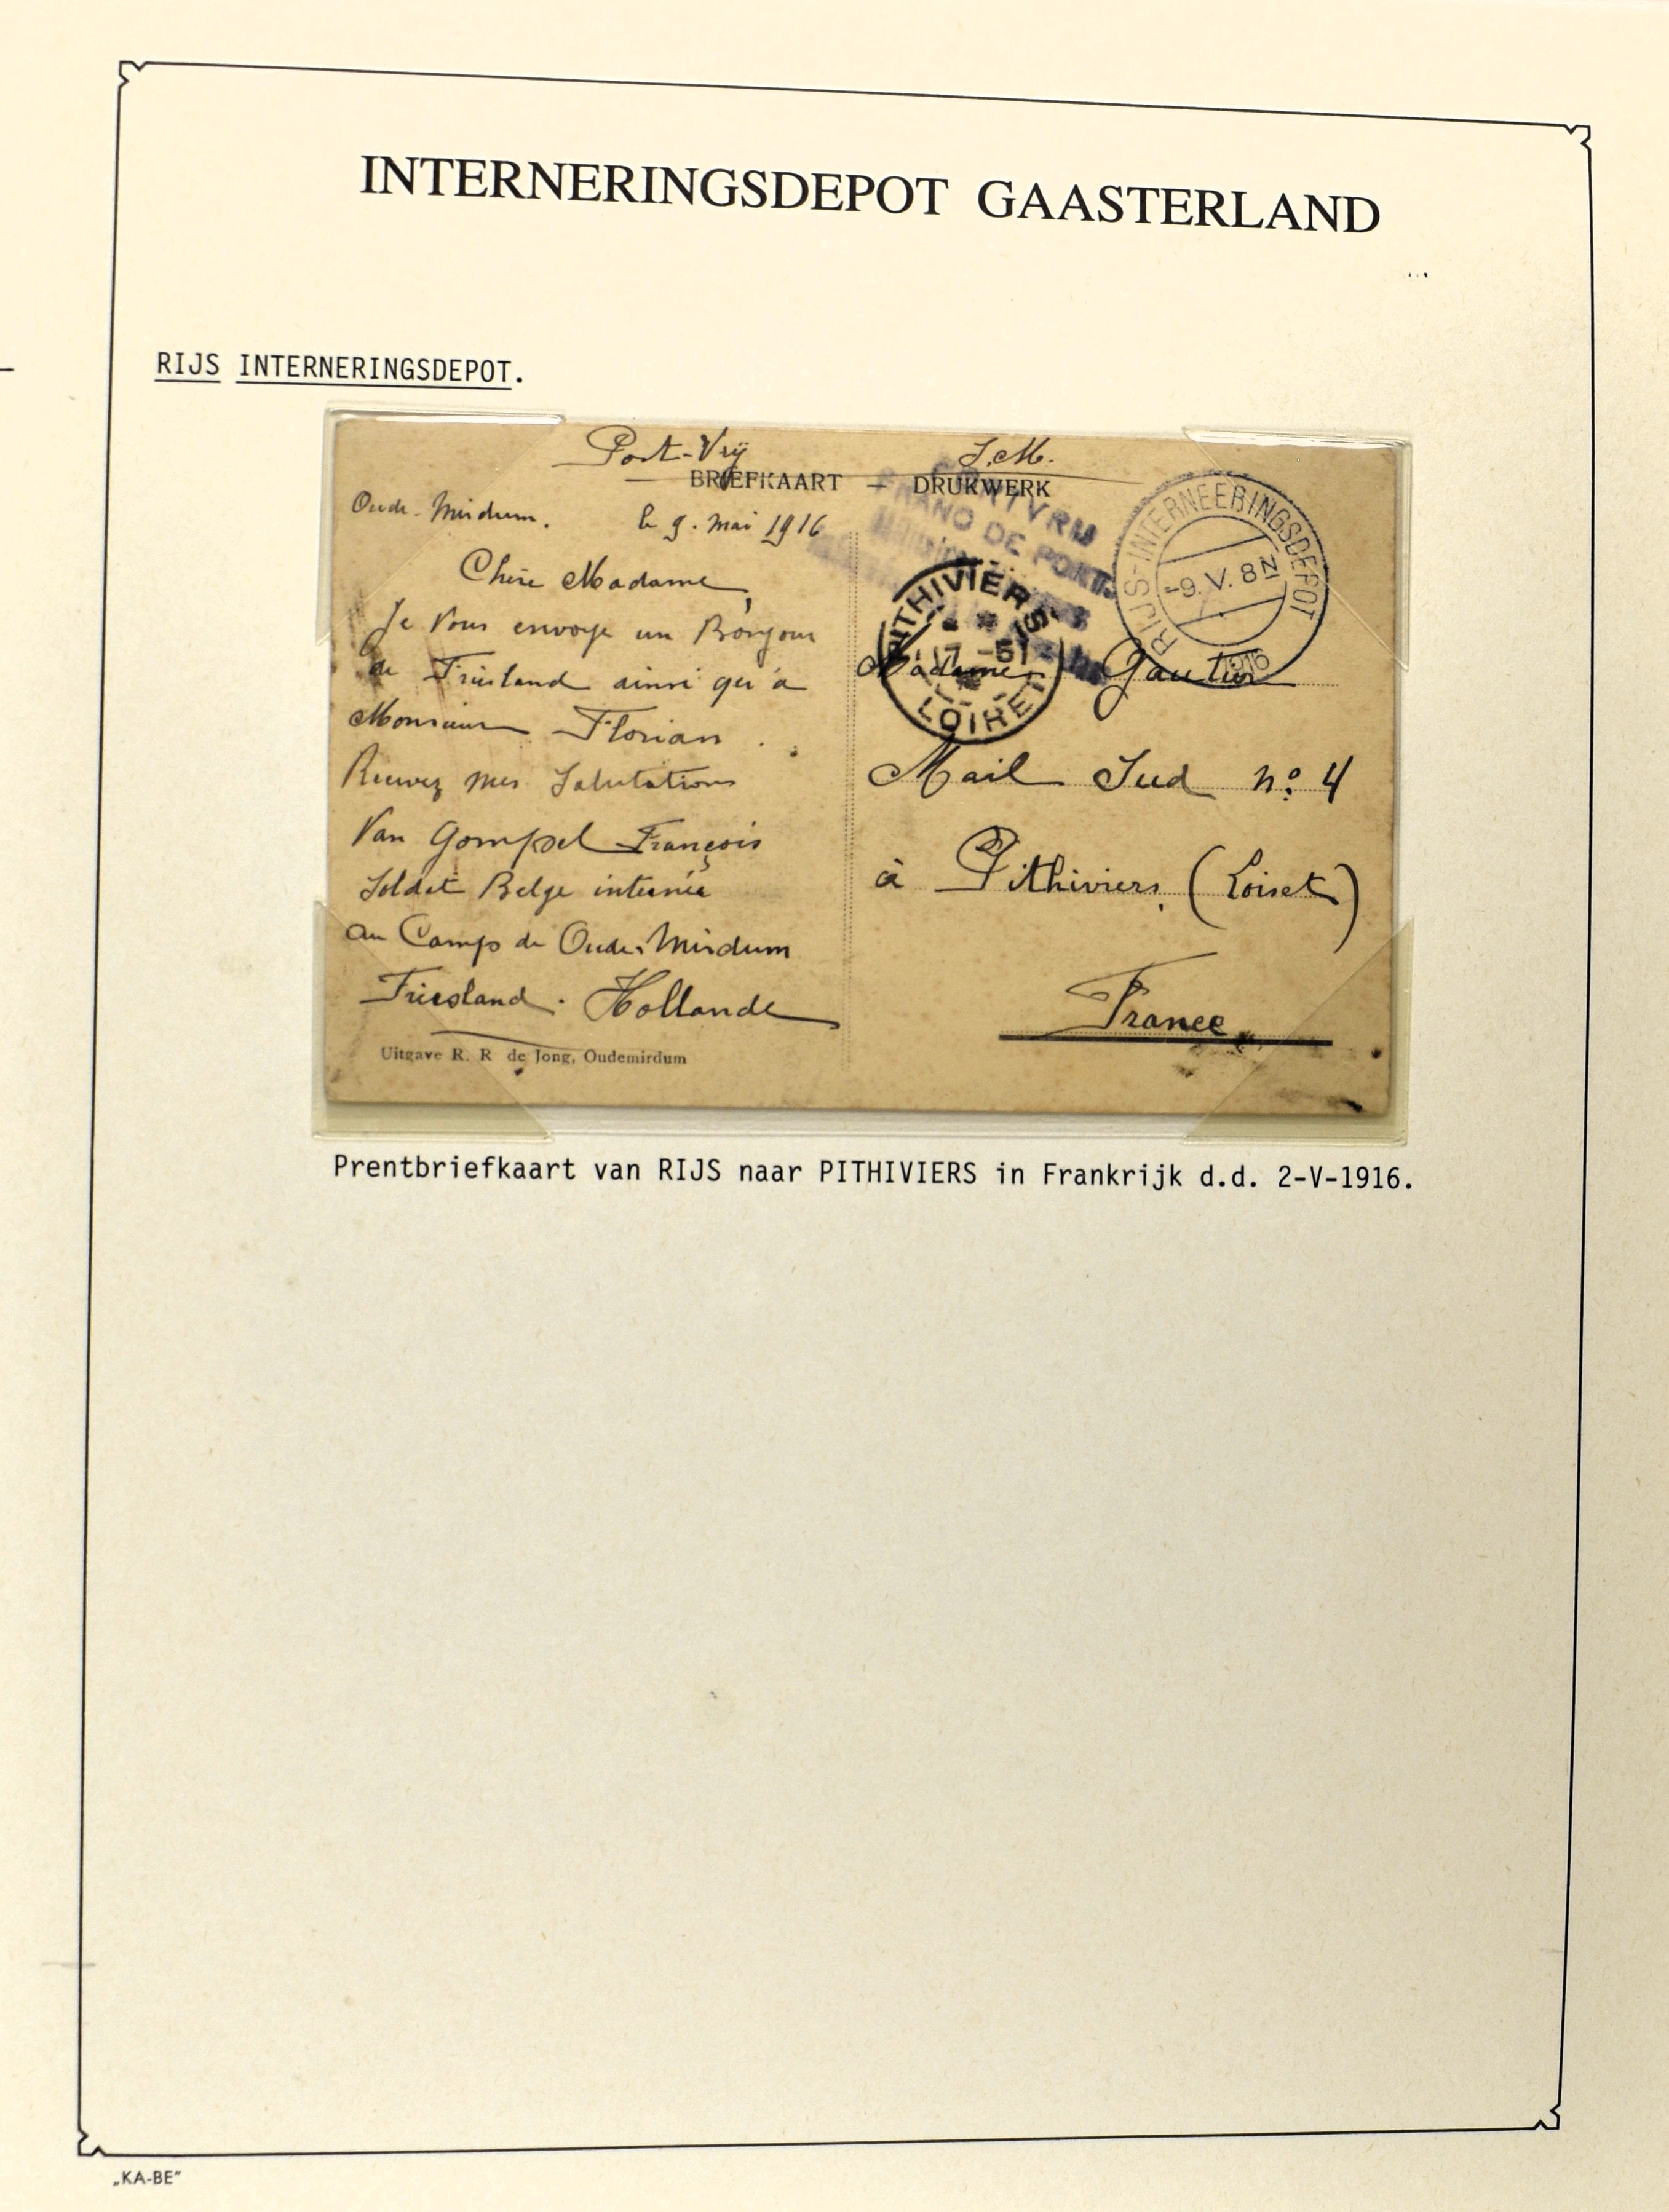 INTERNERINGSDEPOT GAASTERLAND
RIJS INTERNERINGSDEPOT.
Post-Vrij S.M.
BRIEFKAART — DRUKWERK
Oude-Mirdum. le 9. mai 1916
Chère Madame,
Je Vous envoye un Bonjour
de Friesland ainsi qu'à
Monsieur Florian.
Recevez mes Salutations
Van Gompel François
Soldat Belge internée
au Camp de Oude-Mirdum
Friesland. Hollande
Uitgave R. R de Jong, Oudemirdum
PORTVRIJ
FRANC DE PORT.
PITHIVIERS
17 -5
LOIRET
RIJS-INTERNEERINGSDEPOT
-9.V.8N
1916
Madame Gautier
Mail Sud nº 4
à Pithiviers (Loiret)
France
Prentbriefkaart van RIJS naar PITHIVIERS in Frankrijk d.d. 2-V-1916.
„KA-BE"